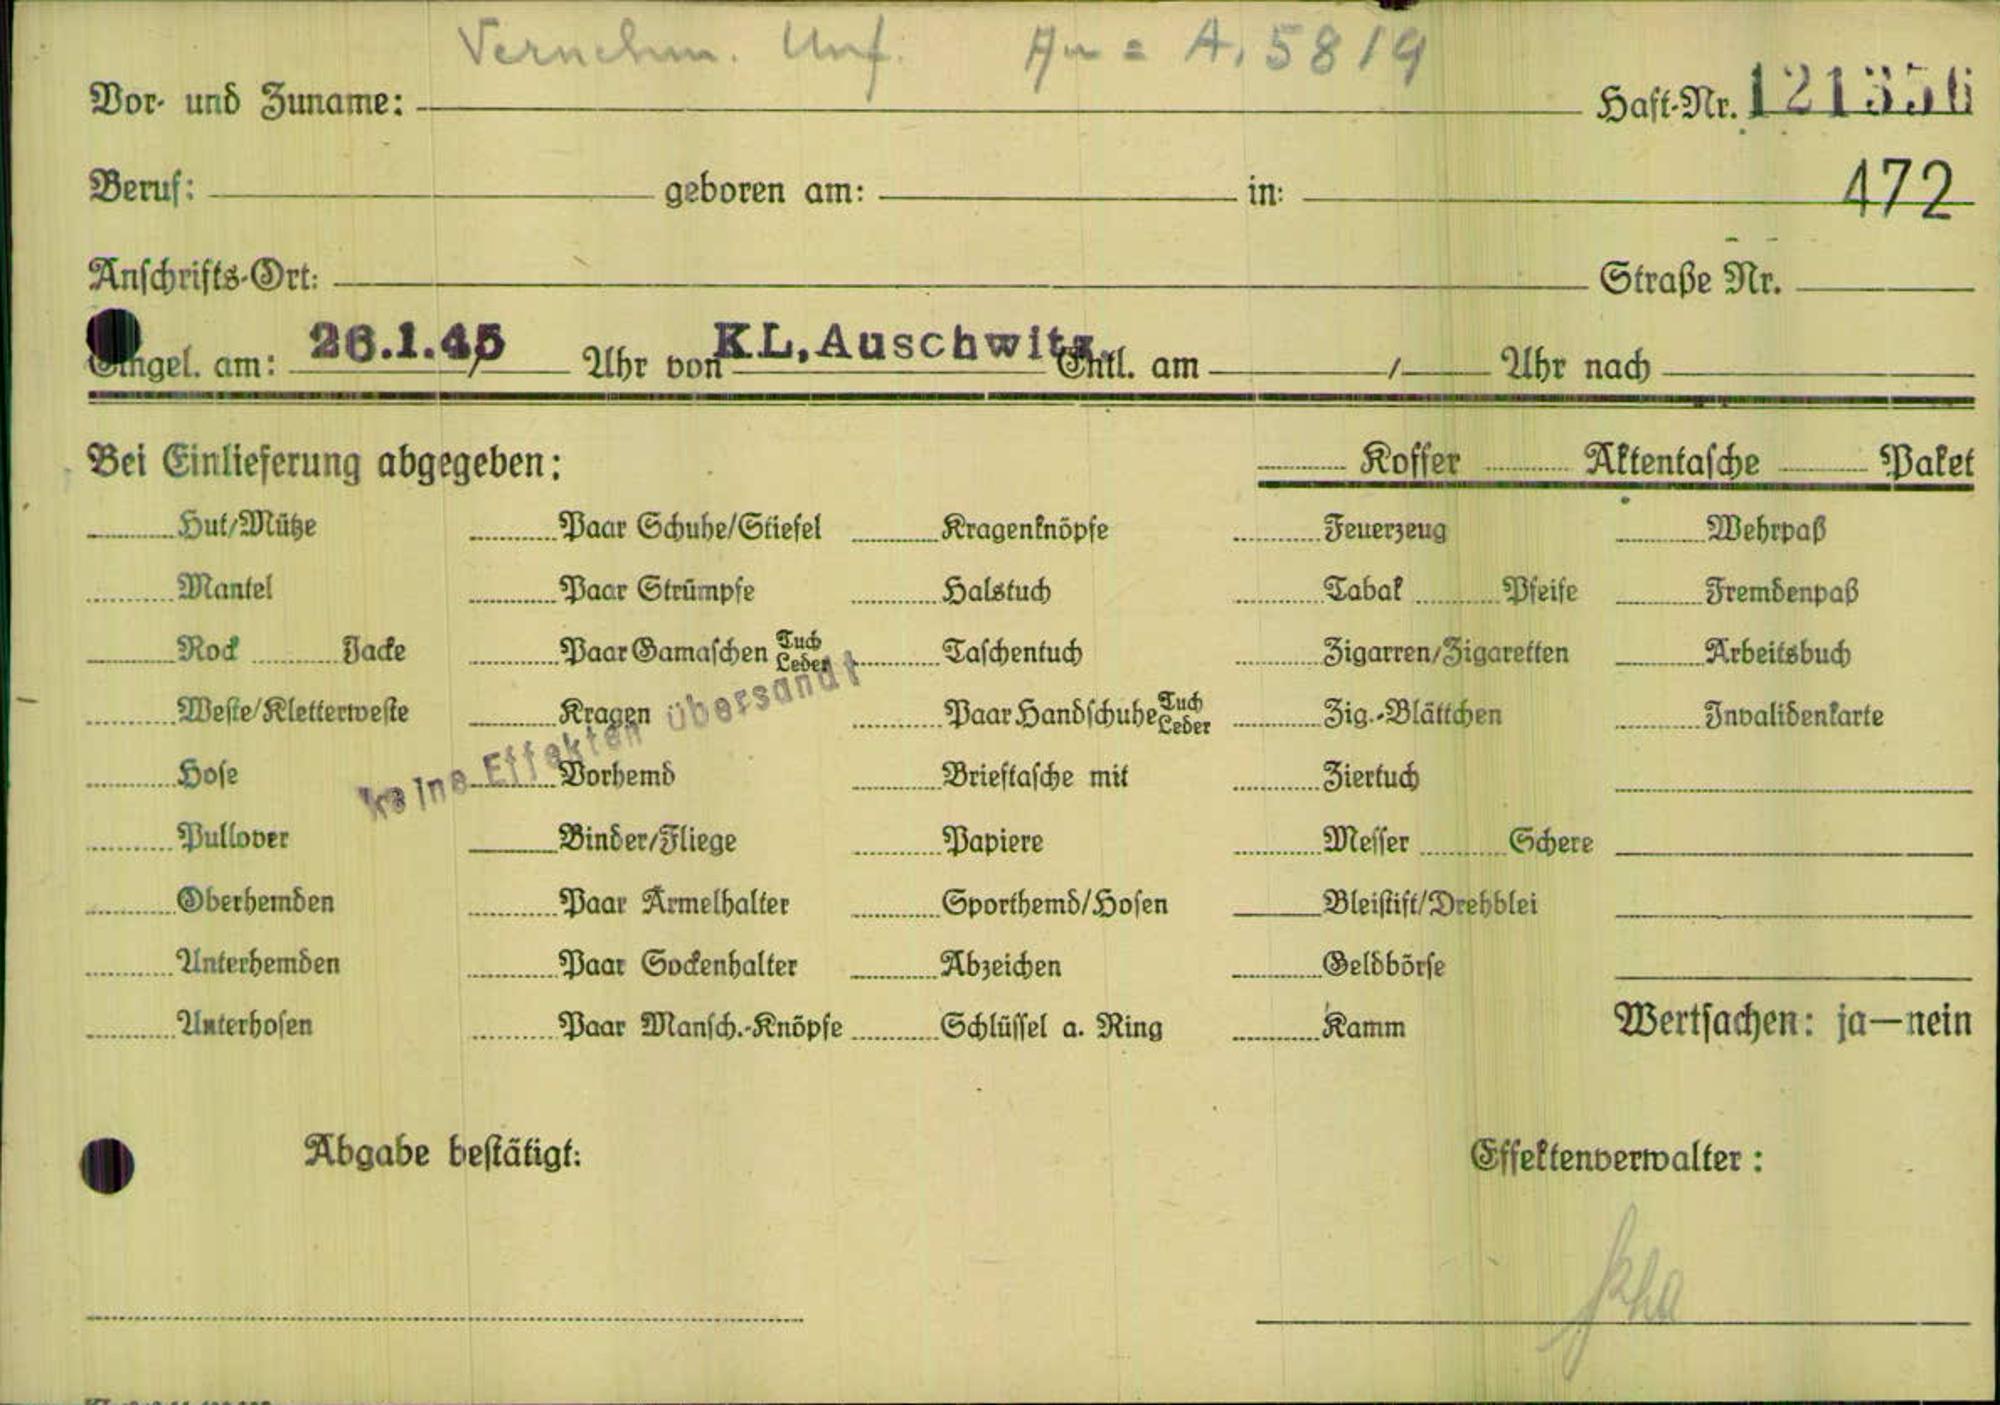 Vernehm. Unf. Au = A. 5819
Vor- und Zuname: Haft-Nr. 121356
Beruf: geboren am: in: 472
Anschrifts-Ort: Straße Nr.
Eingel. am: 26.1.45 Uhr von KL. Auschwitz. Entl. am / Uhr nach
Bei Einlieferung abgegeben: Koffer Aktentasche Paket
Hut/Mütze Paar Schuhe/Stiefel Kragenknöpfe Feuerzeug Wehrpaß
Mantel Paar Strümpfe Halstuch Tabak Pfeife Fremdenpaß
Rock Jacke Paar Gamaschen Tuch Leder Taschentuch Zigarren/Zigaretten Arbeitsbuch
Weste/Kletterweste Kragen Paar Handschuhe Tuch Leder Zig.-Blättchen Invalidenkarte
keine Effekten übersandt
Hose Vorhemd Brieftasche mit Ziertuch
Pullover Binder/Fliege Papiere Messer Schere
Oberhemden Paar Ärmelhalter Sporthemd/Hosen Bleistift/Drehblei
Unterhemden Paar Sockenhalter Abzeichen Geldbörse
Unterhosen Paar Mansch.-Knöpfe Schlüssel a. Ring Kamm Wertsachen: ja—nein
Abgabe bestätigt: Effektenverwalter: